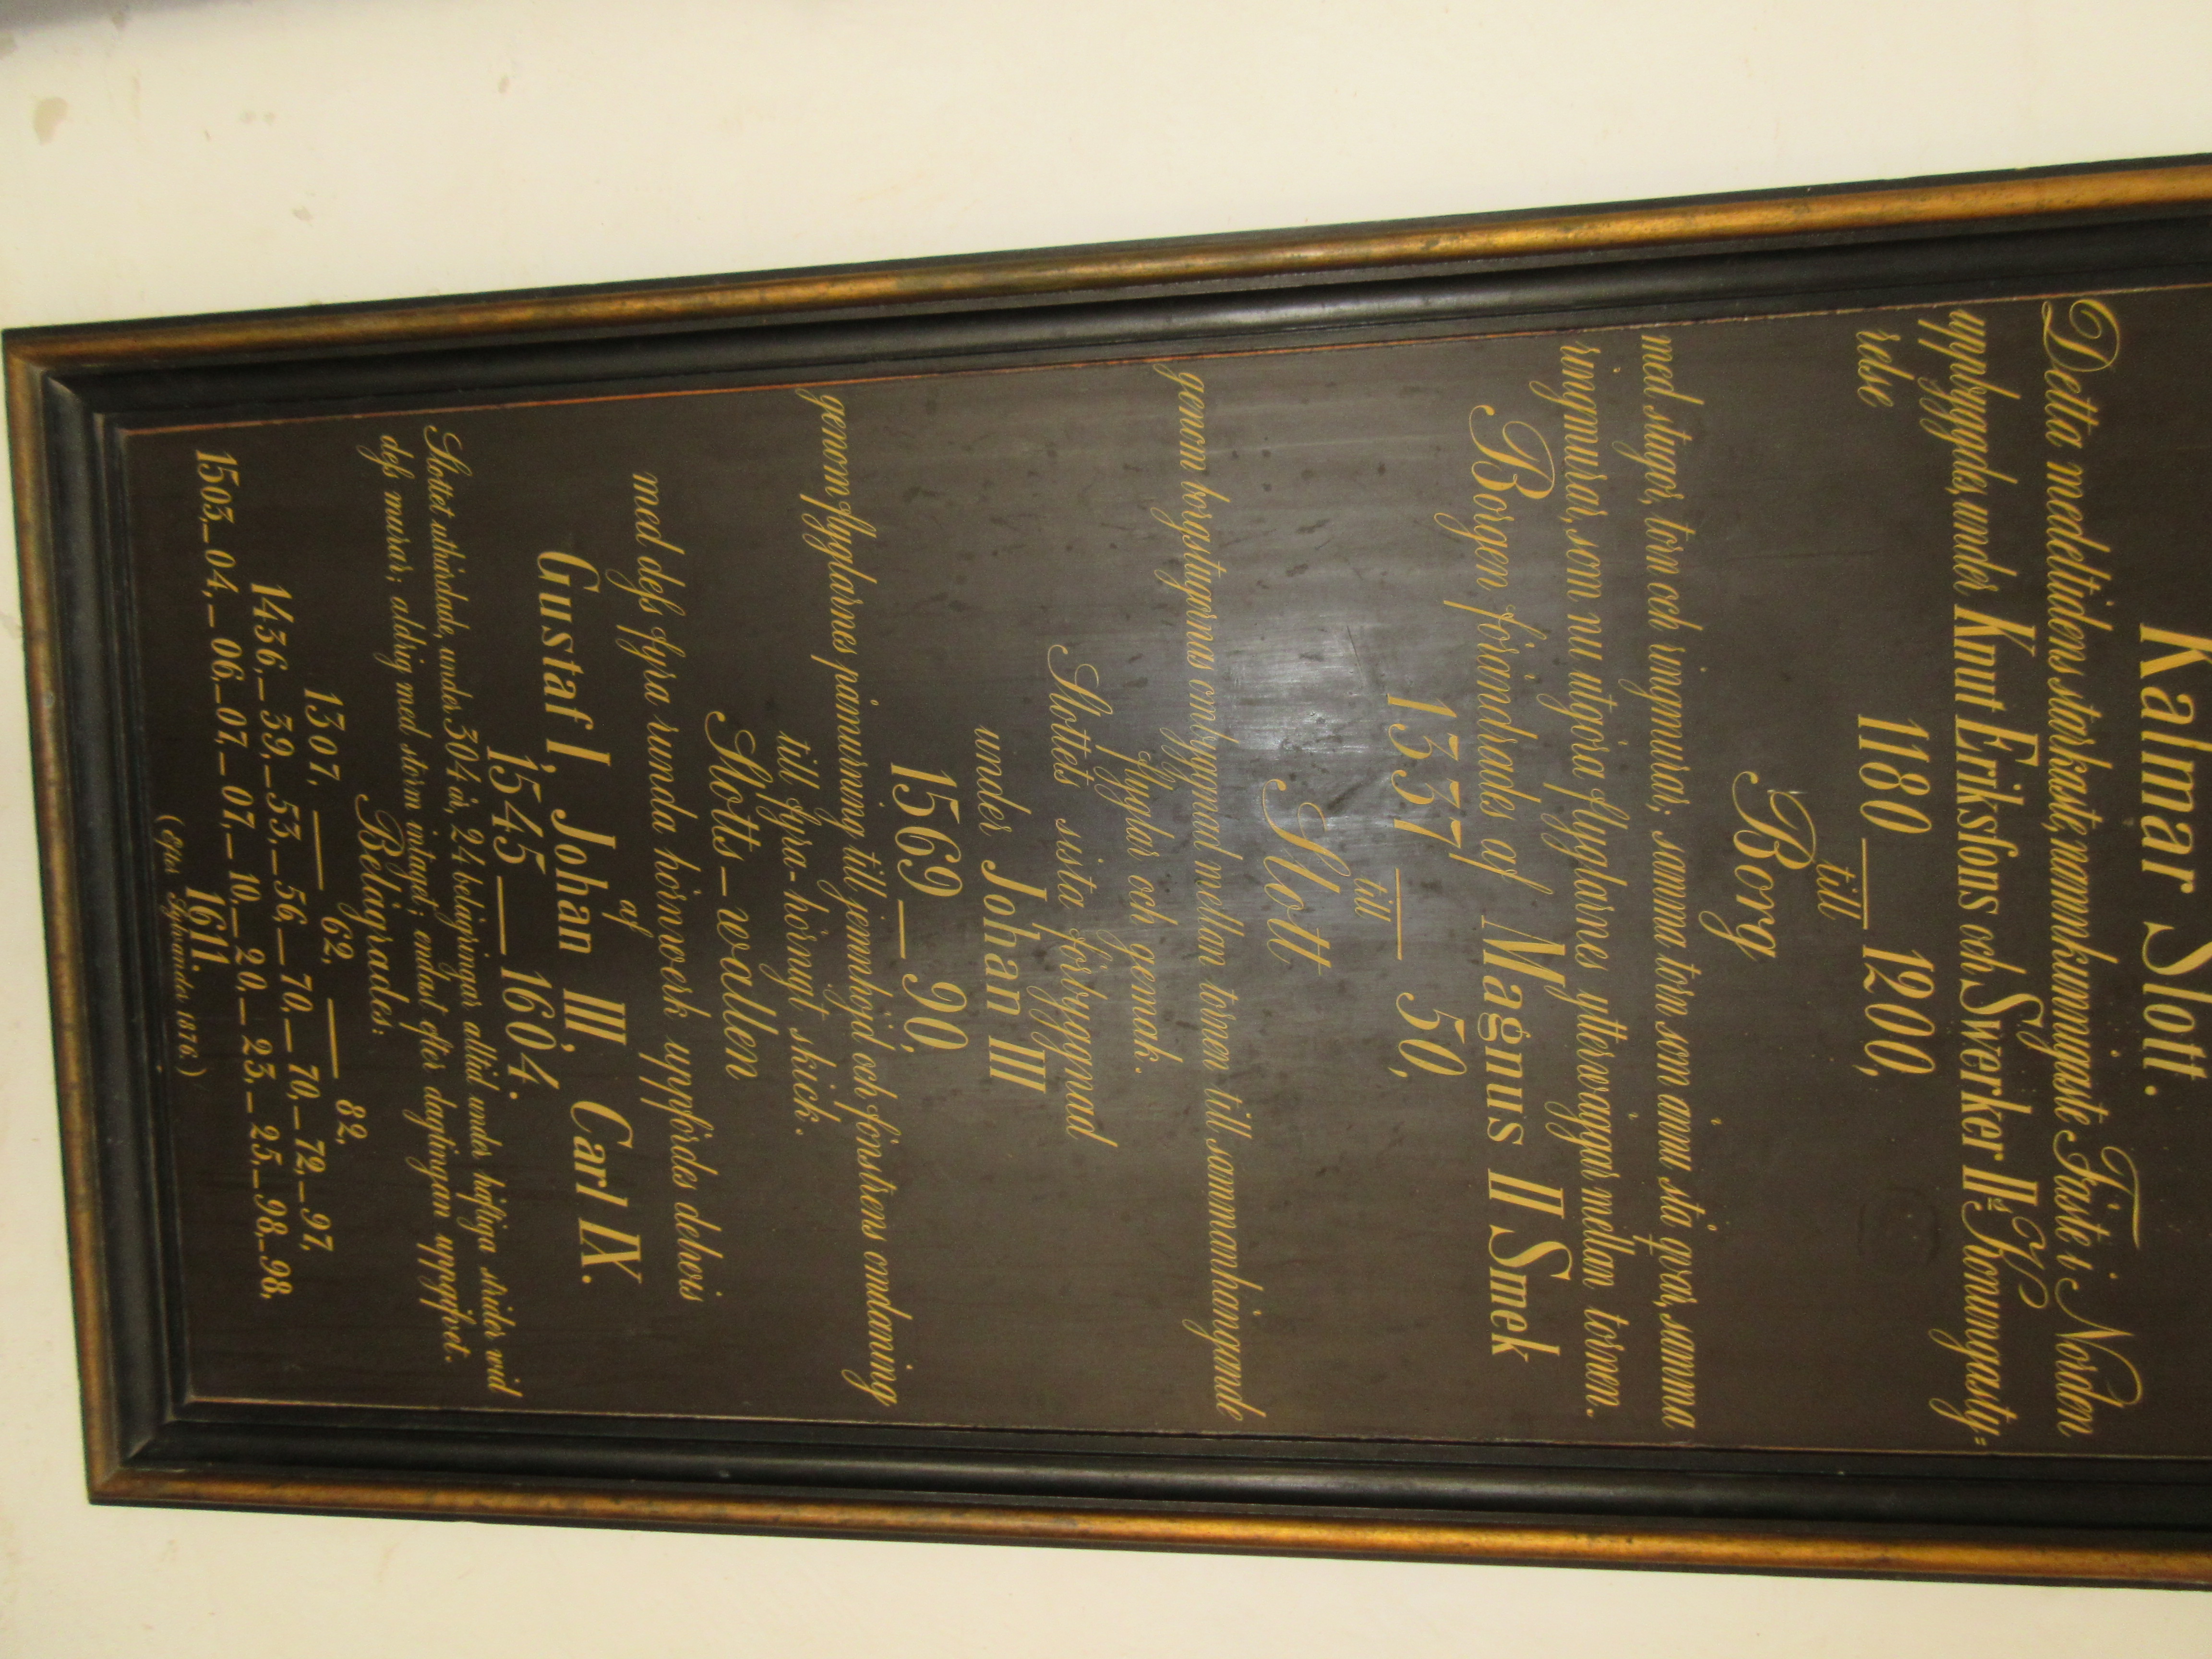 Kalmar Slott.
Detta medeltidens starkaste, namnkunnigaste Fäste i Norden
uppbyggdes, under Knut Eriksſons och Swerker II:s Konungasty=
relse
1180 — 1200,
till
Borg
med stugor, torn och ringmurar; samma torn som ännu stå qvar, samma
ringmurar, som nu utgöra flyglarnes ytterwäggar mellan tornen.
Borgen förändrades af Magnus II Smek
1337 — 50,
till
Slott
genom borgstugornas ombyggnad mellan tornen till sammanhängande
flyglar och gemak.
Slottets sista förbyggnad
under Johan III
1569 — 90,
genom flyglarnes påmurning till jemnhöjd och fönstrens omdaning
till fyra-hörnugt skick.
Slotts-wallen
med deſs fyra runda hörnwerk uppfördes delwis
af
Gustaf I, Johan III, Carl IX.
1545 — 1604.
Slottet uthärdade, under 304 år, 24 belägringar alltid under häftiga strider wid
deſs murar; aldrig med storm intaget; endast efter dagtingan uppgifvet.
Belägrades:
1307, — 62, — 82,
1436,— 39,— 53,— 56,— 70,— 70,— 72,— 97,
1503,— 04,— 06,— 07,— 07,— 10,— 20,— 23,— 25,— 98,— 98,
1611.
(Efter Sylvander 1876.)